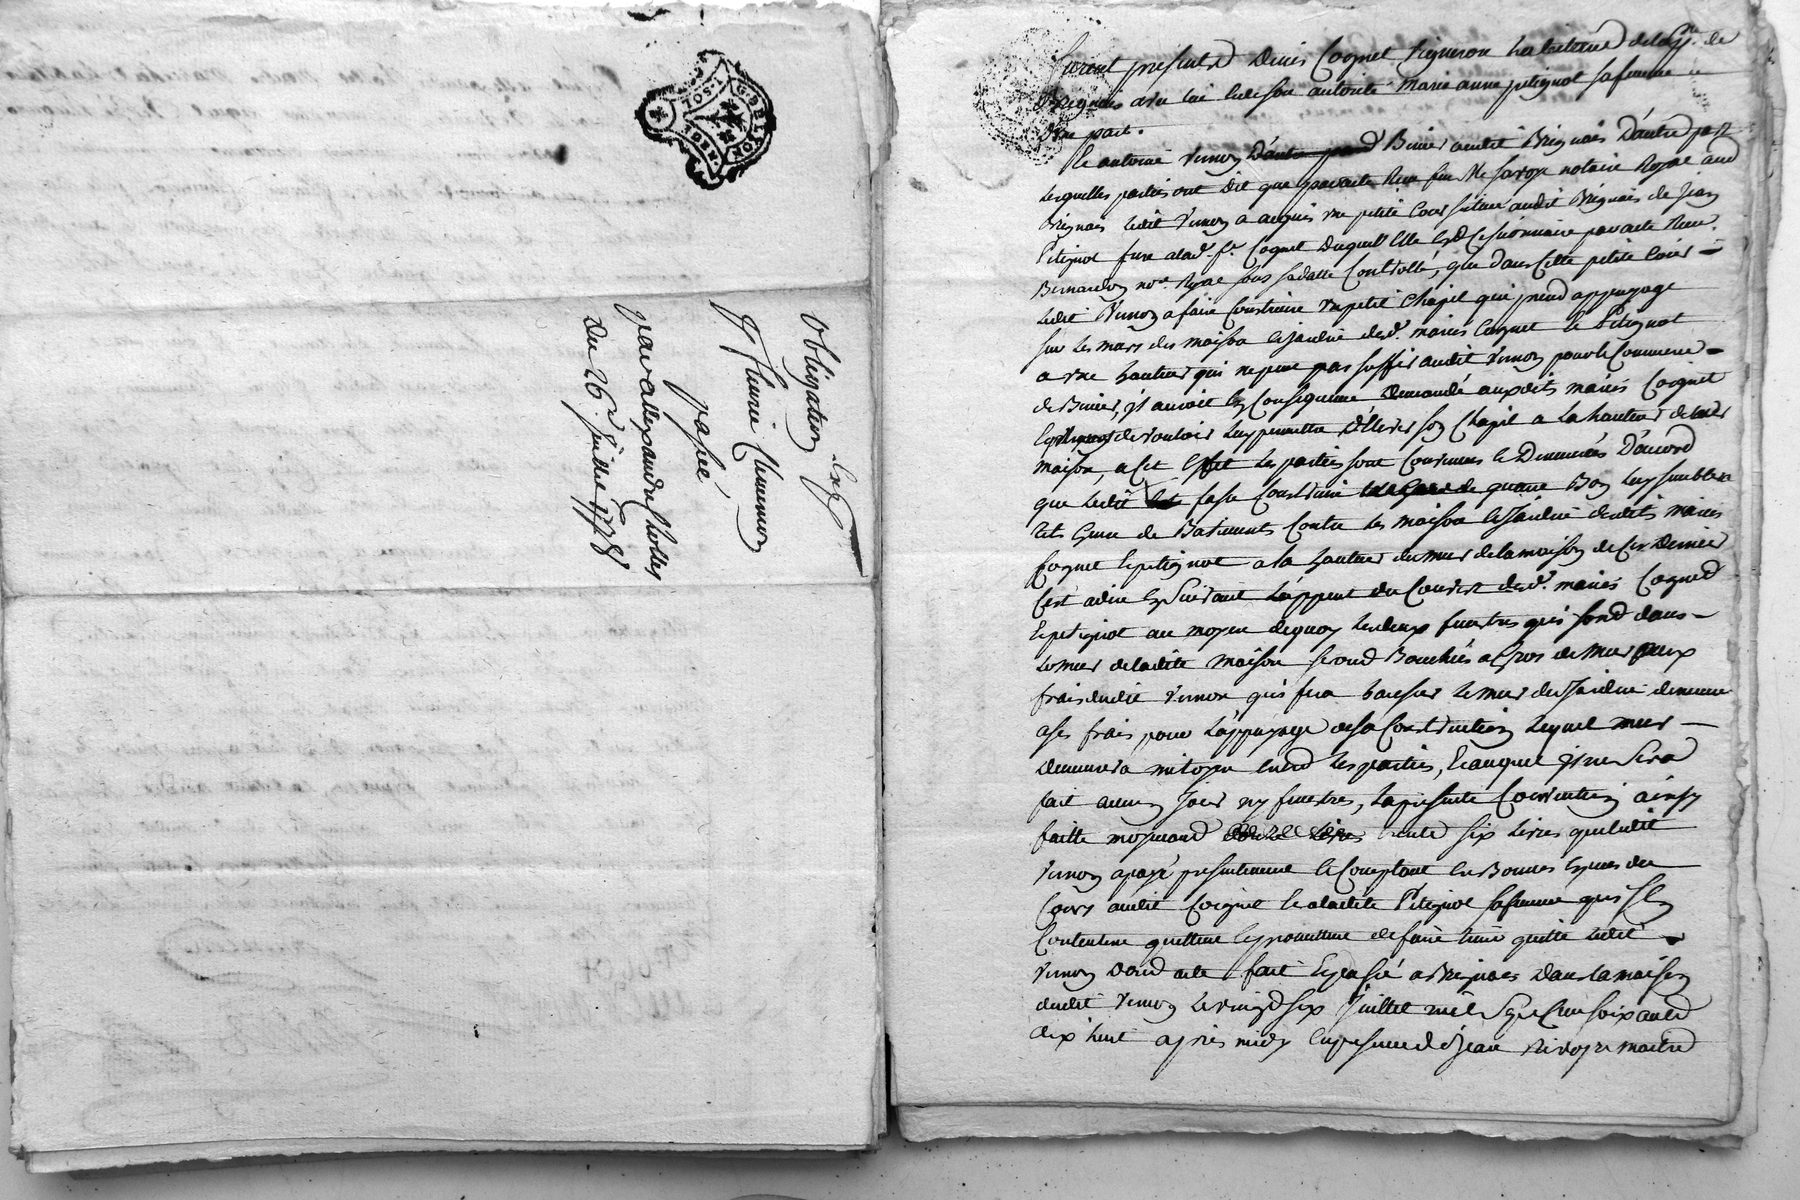 G. DE LYON
1. SOL
8. DEN
Obligaõn
Fleurie Clemenson
passée
par allexandre Cholles
Du 26e. Juillet 1778
Furent presents Denis Coignet Vigneron habitant de la psse. de
Brignais avec lui et de son autorité Marie anne petignot sa femme
D'une part.
Et antoine Vernon Binier audit Brignais D'autre part
Lesquelles parties ont dit que par acte Receu feu Me notaire Royal aud
Brignais ledit Vernon a acquis une petite Cour située audit Brignais de Jean
Petignot de laquelle est Cessionnaire par acte Receu
Bernardon nore. Royal sous sa datte Controllé, que dans Cette petite Cour
Ledit Vernon a fait Construire un petit Chapit qui prend appuyage
sur les murs des maison et jardin desd. mariés Cognet et Petignot
a une hauteur qui ne peut pas suffir audit Vernon pour le Commerce
de Binier, il auroit en Consequence Demandé auxdits mariés Cognet
et petignot de vouloir luy permettre D'élever son Chapit a la hauteur de leur
maison, a Cet Effet les parties sont Convenues et Demeurées D'accord
que ledit fasse Construire quant Bon luy semblera
tels genre de Batiments Contre les maison et Jardin desdits mariés
Cognet et petignot a la hauteur du mur de la maison de Ces Derniers
C'est a dire en suivant l'appent du Couvert desd. mariés Cognet
et petignot au moyen de quoy les deux fenetres qui sont dans
le mur de ladite maison seront Bouchées a gros de mur aux
frais dudit Vernon qui fera hausser le mur du Jardin
a ses frais pour l'appuyage de sa Construction lequel mur
Demeurera mitoyen entre les parties, et auquel il ne sera
fait aucun jour ny fenetres, la presente Convention ainsy
faitte moyenant trente six Livres que ledit
Vernon a payé presentement et Comptant en Bonnes Especes du
Cours audit Coignet et a ladite Petignot sa femme qui s'en
Contentent quittent et promettent de faire tenir quitte ledit
Vernon Dont acte fait et passé a Brignais Dans la maison
dudit Vernon le vingt six Juillet mil sept Cent soixante
dix huit après midy en presence de Jean maitre